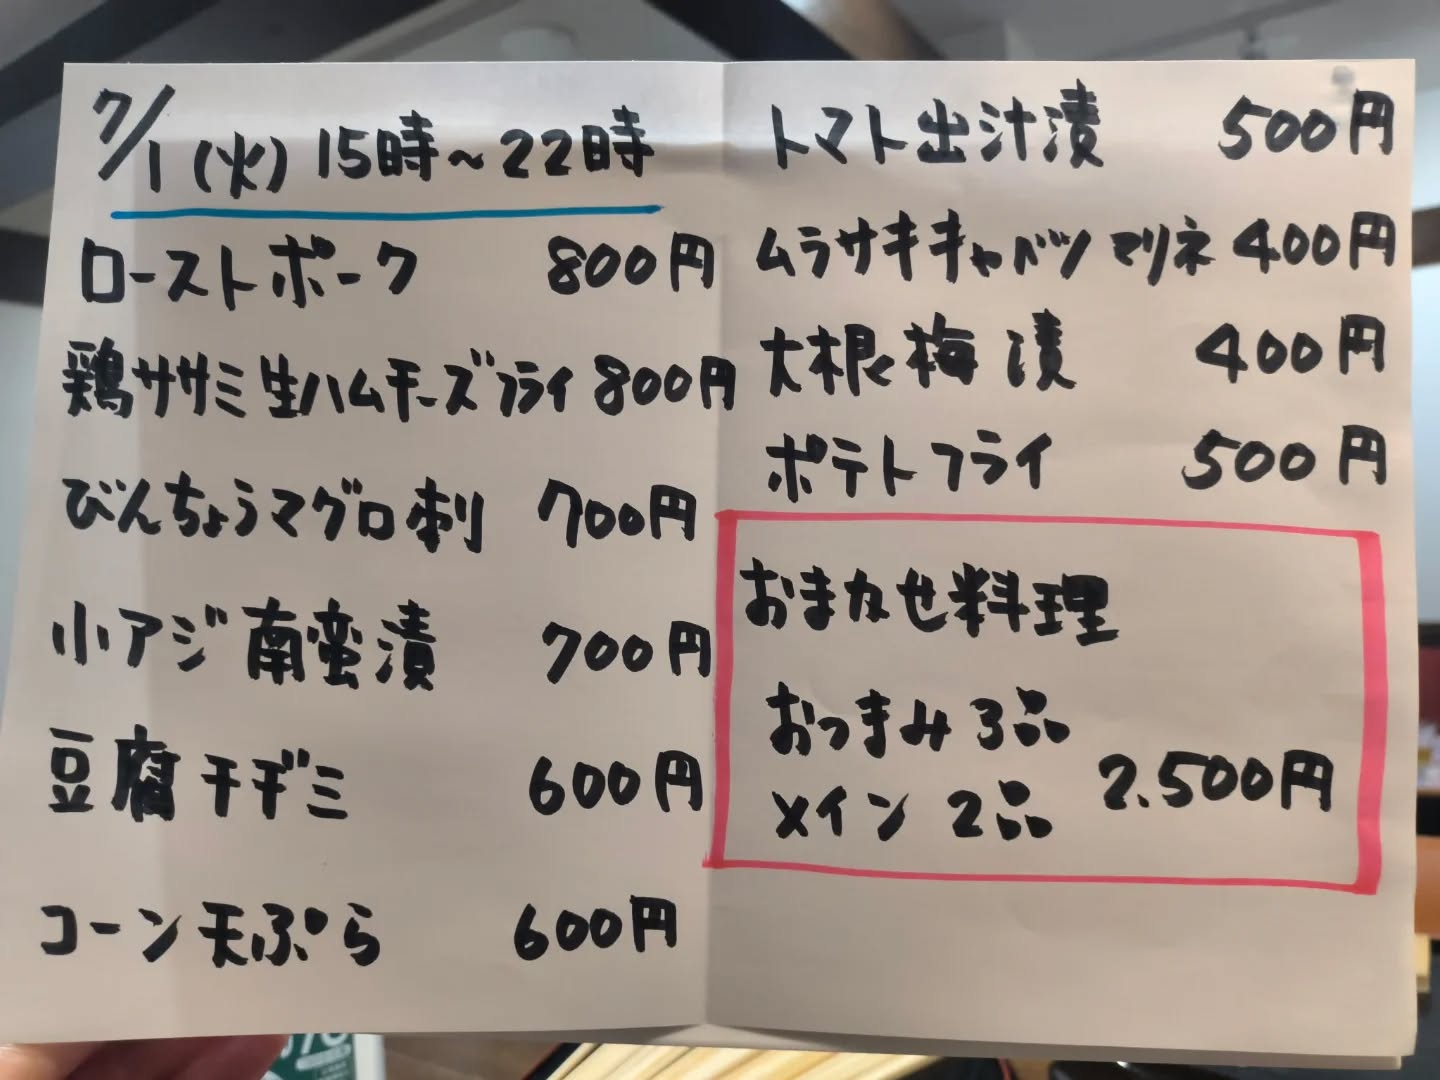 7/1(火)15時~22時
ローストポーク 800円
鶏ササミ生ハムチーズフライ 800円
びんちょうマグロ刺 700円
小アジ南蛮漬 700円
豆腐チヂミ 600円
コーン天ぷら 600円
トマト出汁漬 500円
ムラサキキャベツマリネ 400円
大根梅漬 400円
ポテトフライ 500円
おまかせ料理
おつまみ3品
メイン2品 2.500円